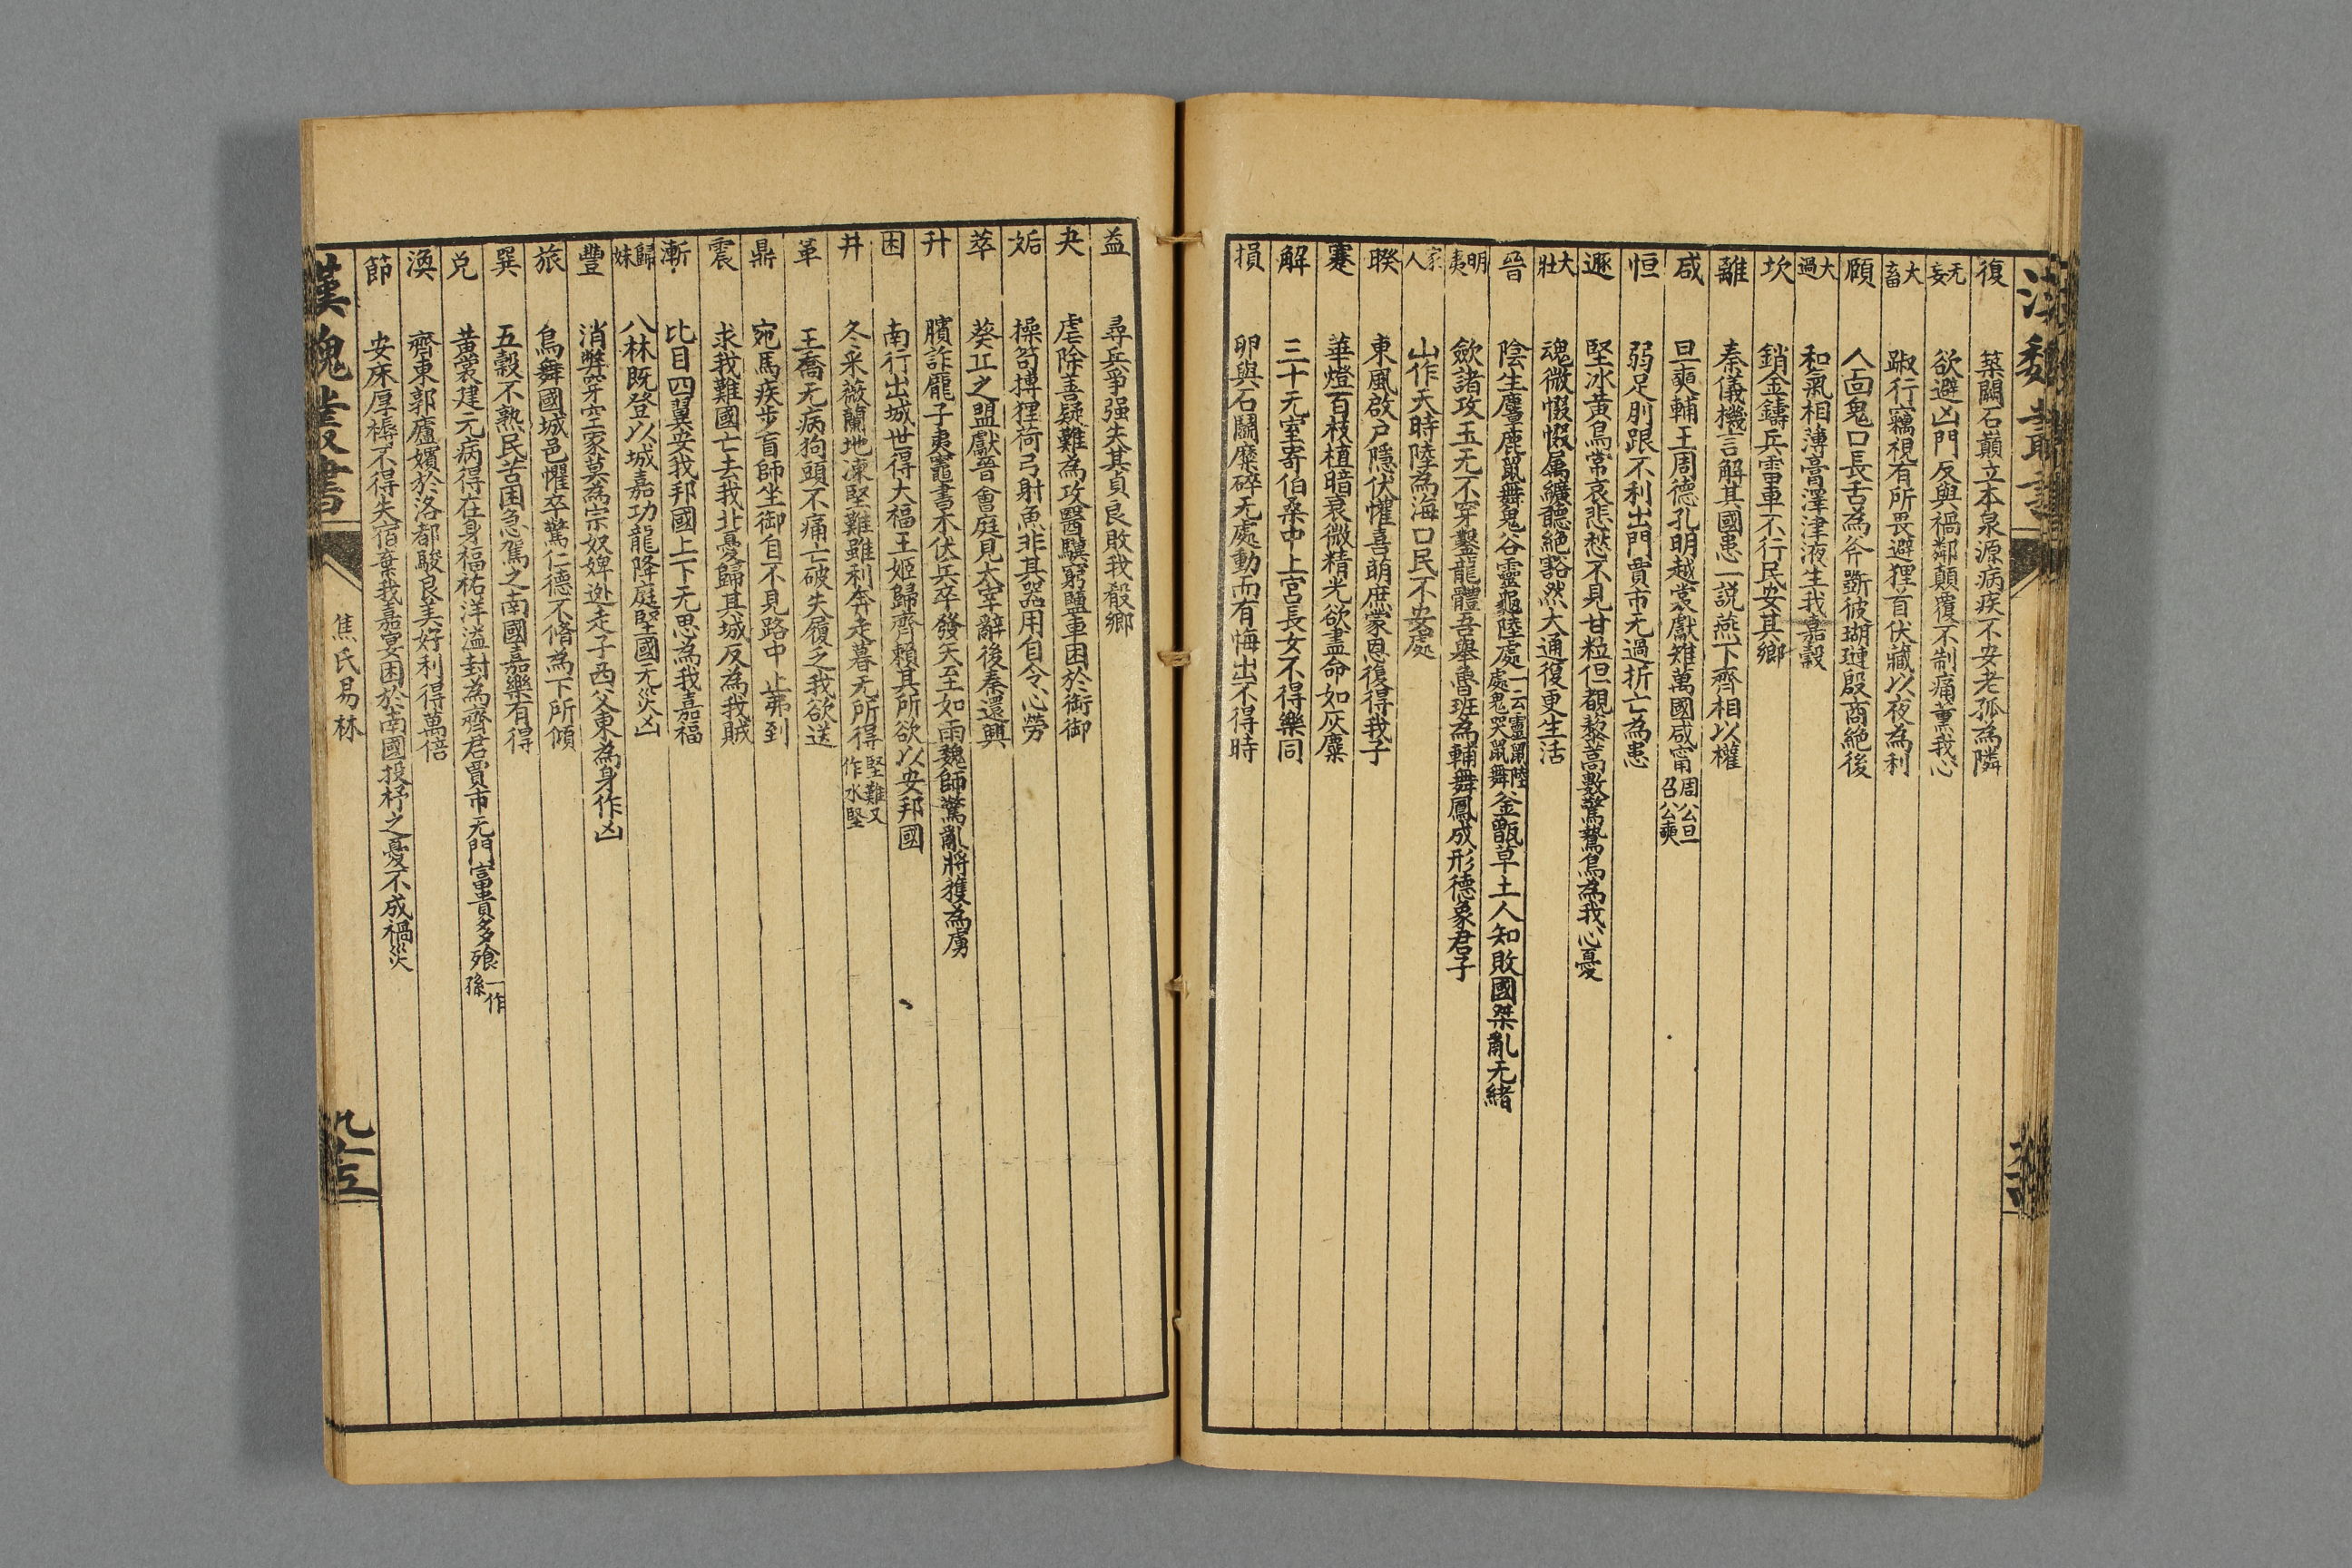 復 築闕石巔立本泉源病疾不安老孤為隣
无妄 欲避凶門反與禍鄰顛覆不制痛薰我心
大畜 踧行竊視有所畏避狸首伏藏以夜為利
頤 人面鬼口長舌為斧斵彼瑚璉殷商絶後
大過 和氣相薄膏澤津液生我嘉穀
坎 銷金鑄兵雷車不行民安其鄉
離 秦儀機言解其國患一説燕下齊相以權
咸 旦奭輔王周德孔明越裳獻雉萬國咸寗 周公旦召公奭
恒 弱足刖跟不利出門賈市无過折亡為患
遯 堅冰黃鳥常哀悲愁不見甘粒但覩藜蒿數驚鷙鳥為我心憂
大壯 魂微惙惙属纊聽絶豁然大通復更生活
晉 陰生麈鹿鼠舞鬼谷靈龜陸處 一云靈鼉陸處鬼哭鼠舞 釜甑草土人知敗國桀亂无緒
明夷 歛諸攻玉无不穿鑿龍體吾舉魯班為輔舞鳳成形德象君子
家人 山作天時陸為海口民不安處
睽 東風啟户隱伏懽喜萌庶蒙恩復得我子
蹇 華燈百枝植暗衰微精光欲盡命如灰糜
解 三十无室寄伯桑中上宮長女不得樂同
損 卵與石鬬糜碎无處動而有悔出不得時
益 尋兵爭强失其貞良敗我殽鄉
夬 虐除善疑難為攻醫驥窮鹽車困於銜御
姤 操笱搏狸荷弓射魚非其器用自令心勞
萃 葵丘之盟獻晉會庭見太宰辭後秦還興
升 臏詐龐子夷竈書木伏兵卒發矢至如雨魏師驚亂將獲為虜
困 南行出城世得大福王姬歸齊賴其所欲以安邦國
井 冬采薇蘭地凍堅難雖利奔走暮无所得 堅難又作水堅
革 王喬无病狗頭不痛亡破失履乏我欲送
鼎 宛馬疾步盲師坐御自不見路中止弗到
震 求我難國亡去我北憂歸其城反為我賊
漸 比目四翼安我邦國上下无思為我嘉福
歸妹 八林既登以城嘉功龍降庭堅國无災凶
豐 消弊穿空家莫為宗奴婢逃走子西父東為身作凶
旅 烏舞國城邑懼卒驚仁德不脩為下所傾
巽 五穀不熟民苦困急駕之南國嘉樂有得
兌 黃裳建元病得在身福祐洋溢封為齊君賈市无門富貴多飱 一作孫
渙 齊東郭廬嬪於洛都駿良美好利得萬倍
節 安床厚褥不得失宿棄我嘉宴困於南國投杼之憂不成禍災
漢魏叢書 焦氏易林 九五